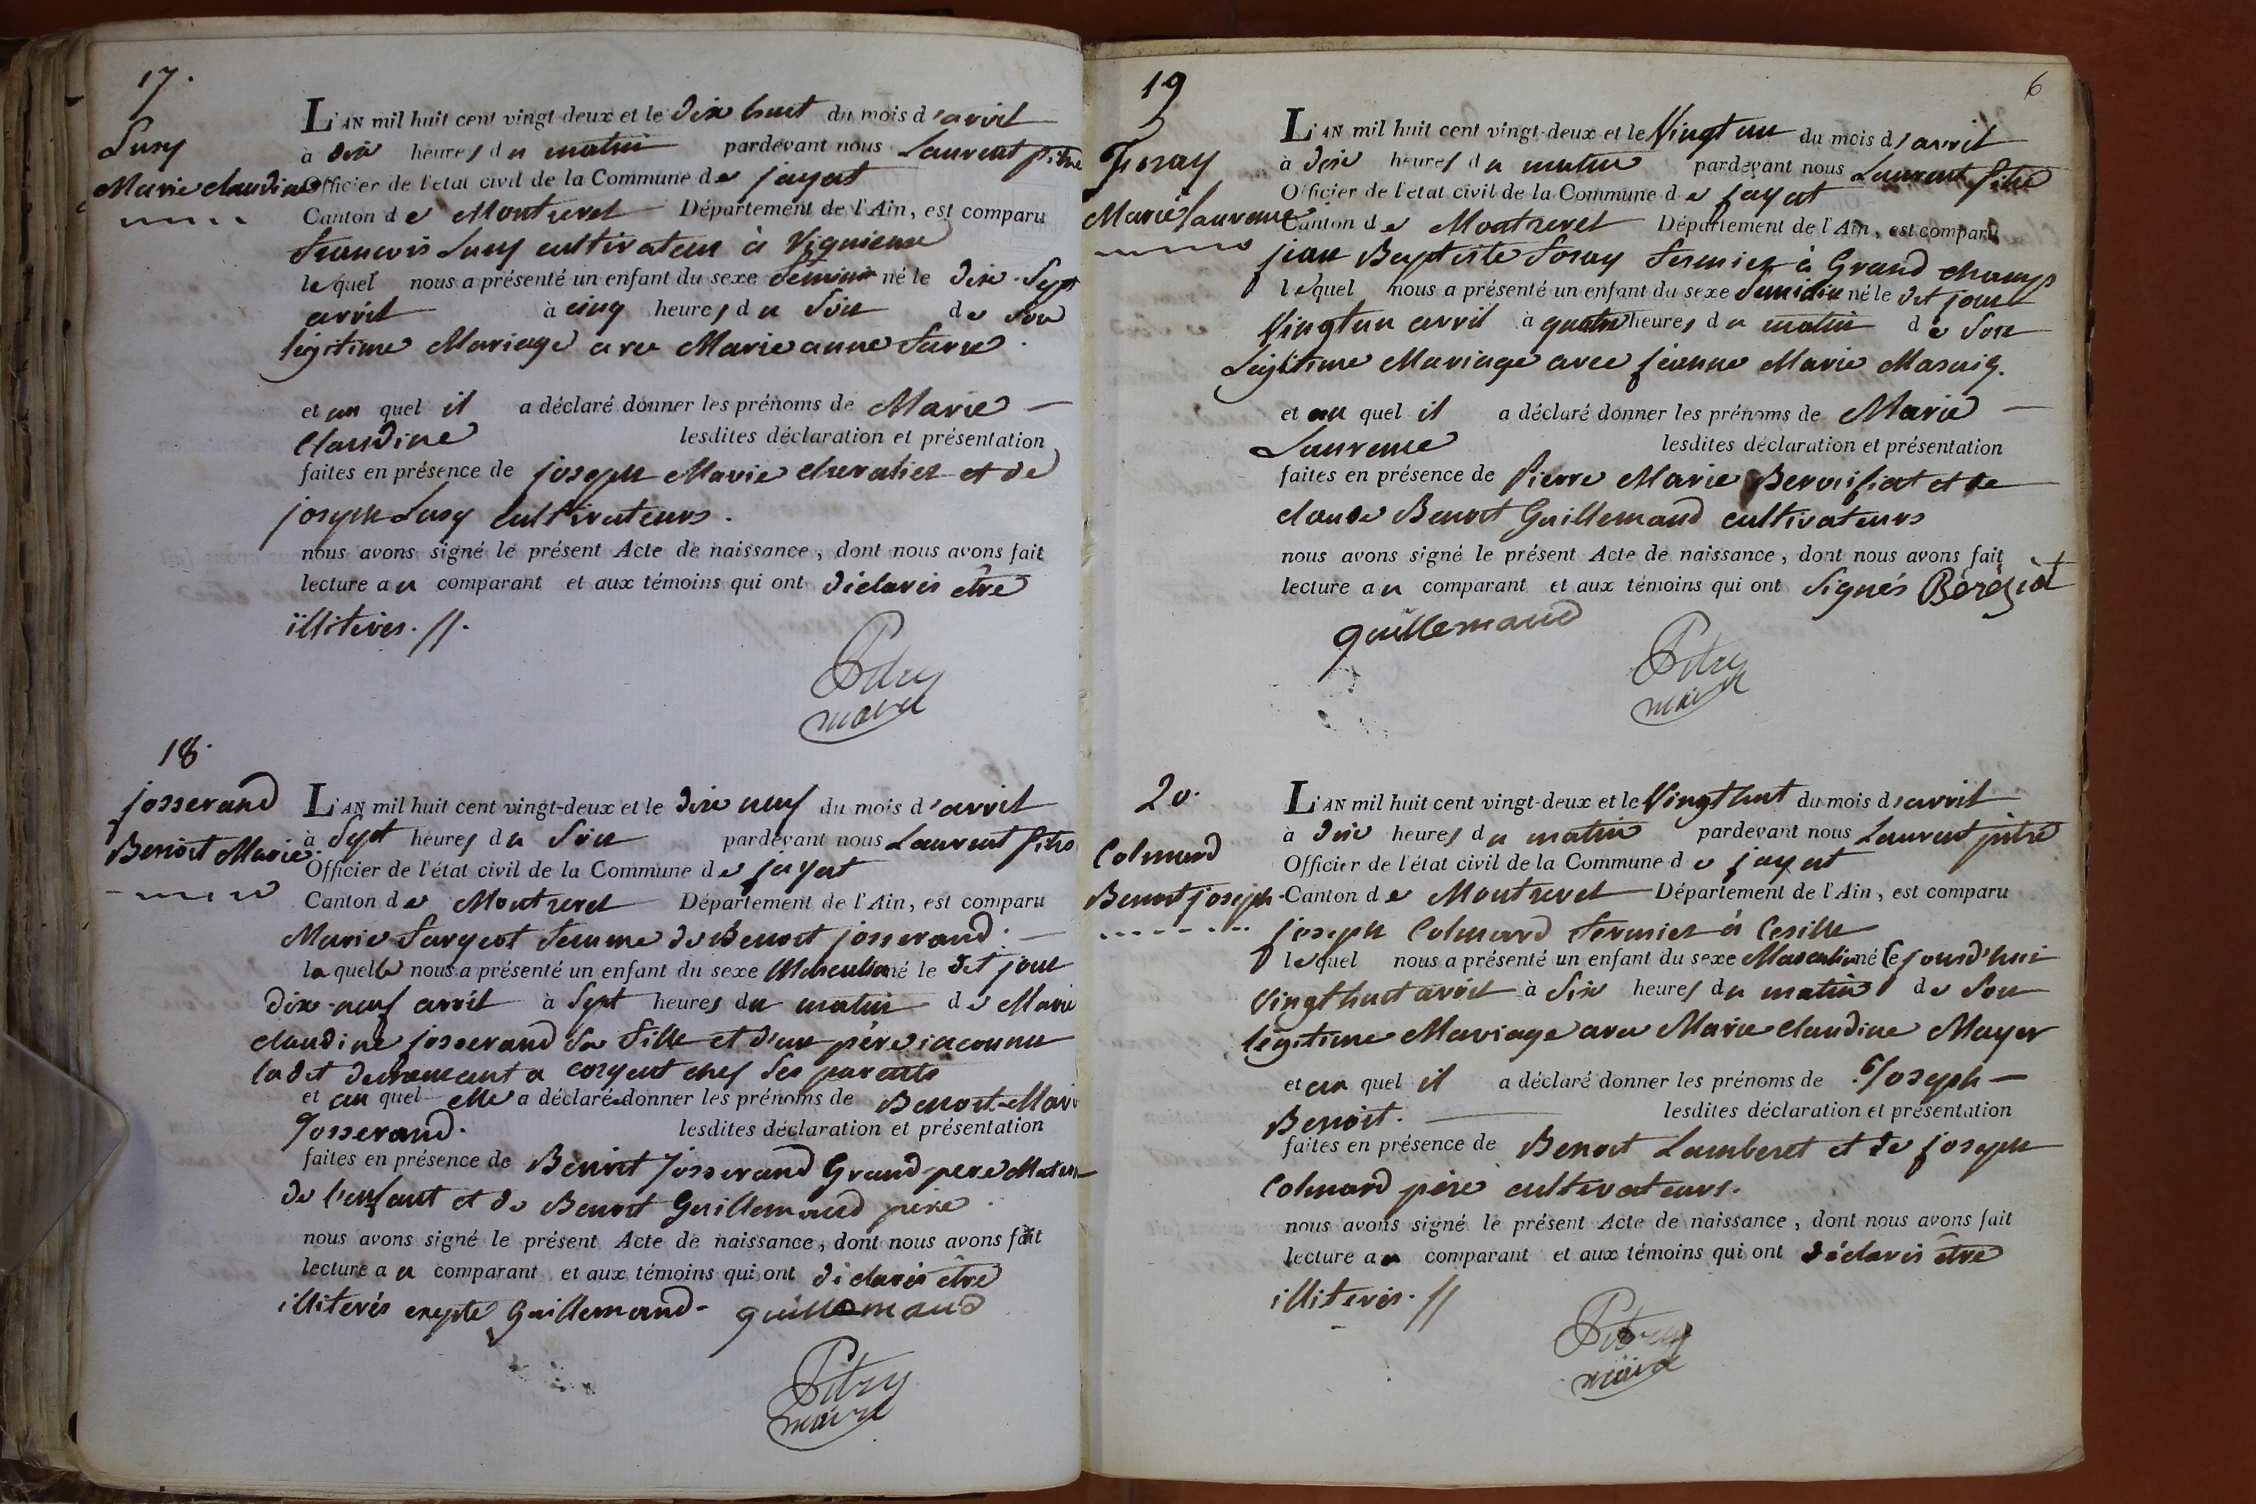 17.
Susy
Marie claudine
L'AN mil huit cent vingt-deux et le dix huit du mois d'avril
à dix heures du matin pardevant nous Laurent pitre
Officier de l'état civil de la Commune de jayat
Canton de Montrevel Département de l'Ain, est comparu
francois Susy cultivateur à
lequel nous a présenté un enfant du sexe feminin né le dix-Sept
avril à cinq heures du Soir de Son
légitime Mariage avec Marie anne
et au quel il a déclaré donner les prénoms de Marie
Claudine lesdites déclaration et présentation
faites en présence de joseph Marie chevalier et de
joseph Susy cultivateurs.
nous avons signé le présent Acte de naissance, dont nous avons fait
lecture au comparant et aux témoins qui ont déclarés être
illiterés. //.
Pitre
maire
18.
josserand
Benoit Marie
L'AN mil huit cent vingt-deux et le dix neuf du mois d'avril
à Sept heures du Soir pardevant nous Laurent pitre
Officier de l'état civil de la Commune de jayat
Canton de Montrevel Département de l'Ain, est comparu
Marie femme de Benoit josserand
laquelle nous a présenté un enfant du sexe Masculin né le dit jour
dix-neuf avril à Sept heures du matin de Marie
claudine josserand Sa fille et d'un père inconnu
ladit demeurant a chez Ses parents
et au quel elle a déclaré donner les prénoms de Benoit-Marie
Josserand. lesdites déclaration et présentation
faites en présence de Benoit Josserand Grand-pere Matern
de l'enfant et de Benoit Guillemaud père
nous avons signé le présent Acte de naissance, dont nous avons fait
lecture au comparant et aux témoins qui ont déclarés être
illiterés exepté Guillemaud- guillemaud
Pitre
maire
6
19
foray
Marie laurence
L'AN mil huit cent vingt-deux et le Vingt un du mois d'avril
à dix heures du matin pardevant nous Laurent pitre
Officier de l'état civil de la Commune de jayat
Canton de Montrevel Département de l'Ain, est comparu
jean Baptiste foray fermier à Grand champs
lequel nous a présenté un enfant du sexe feminin né le dit jour
Vingt un avril à quatre heures du matin de Son
Légitime Mariage avec jeanne Marie
et au quel il a déclaré donner les prénoms de Marie
Laurence lesdites déclaration et présentation
faites en présence de Pierre Marie et de
claude Benoit Guillemaud cultivateurs
nous avons signé le présent Acte de naissance, dont nous avons fait
lecture au comparant et aux témoins qui ont Signés Béréziat
guillemaud
Pitre
maire
20.
Colmard
Benoit joseph
L'AN mil huit cent vingt-deux et le Vingt huit du mois d'avril
à dix heures du matin pardevant nous Laurent pitre
Officier de l'état civil de la Commune de jayat
Canton de Montrevel Département de l'Ain, est comparu
joseph Colmard fermier á Cesille
lequel nous a présenté un enfant du sexe Masculin né cejourd'hui
Vingt huit avril à Six heures du matin de Son
légitime Mariage avec Marie claudine Mayer
et au quel il a déclaré donner les prénoms de Joseph
Benoit. lesdites déclaration et présentation
faites en présence de Benoit Lamberet et de joseph
Colmard père cultivateurs.
nous avons signé le présent Acte de naissance, dont nous avons fait
lecture au comparant et aux témoins qui ont déclarés être
illiterés. //
Pitre
maire